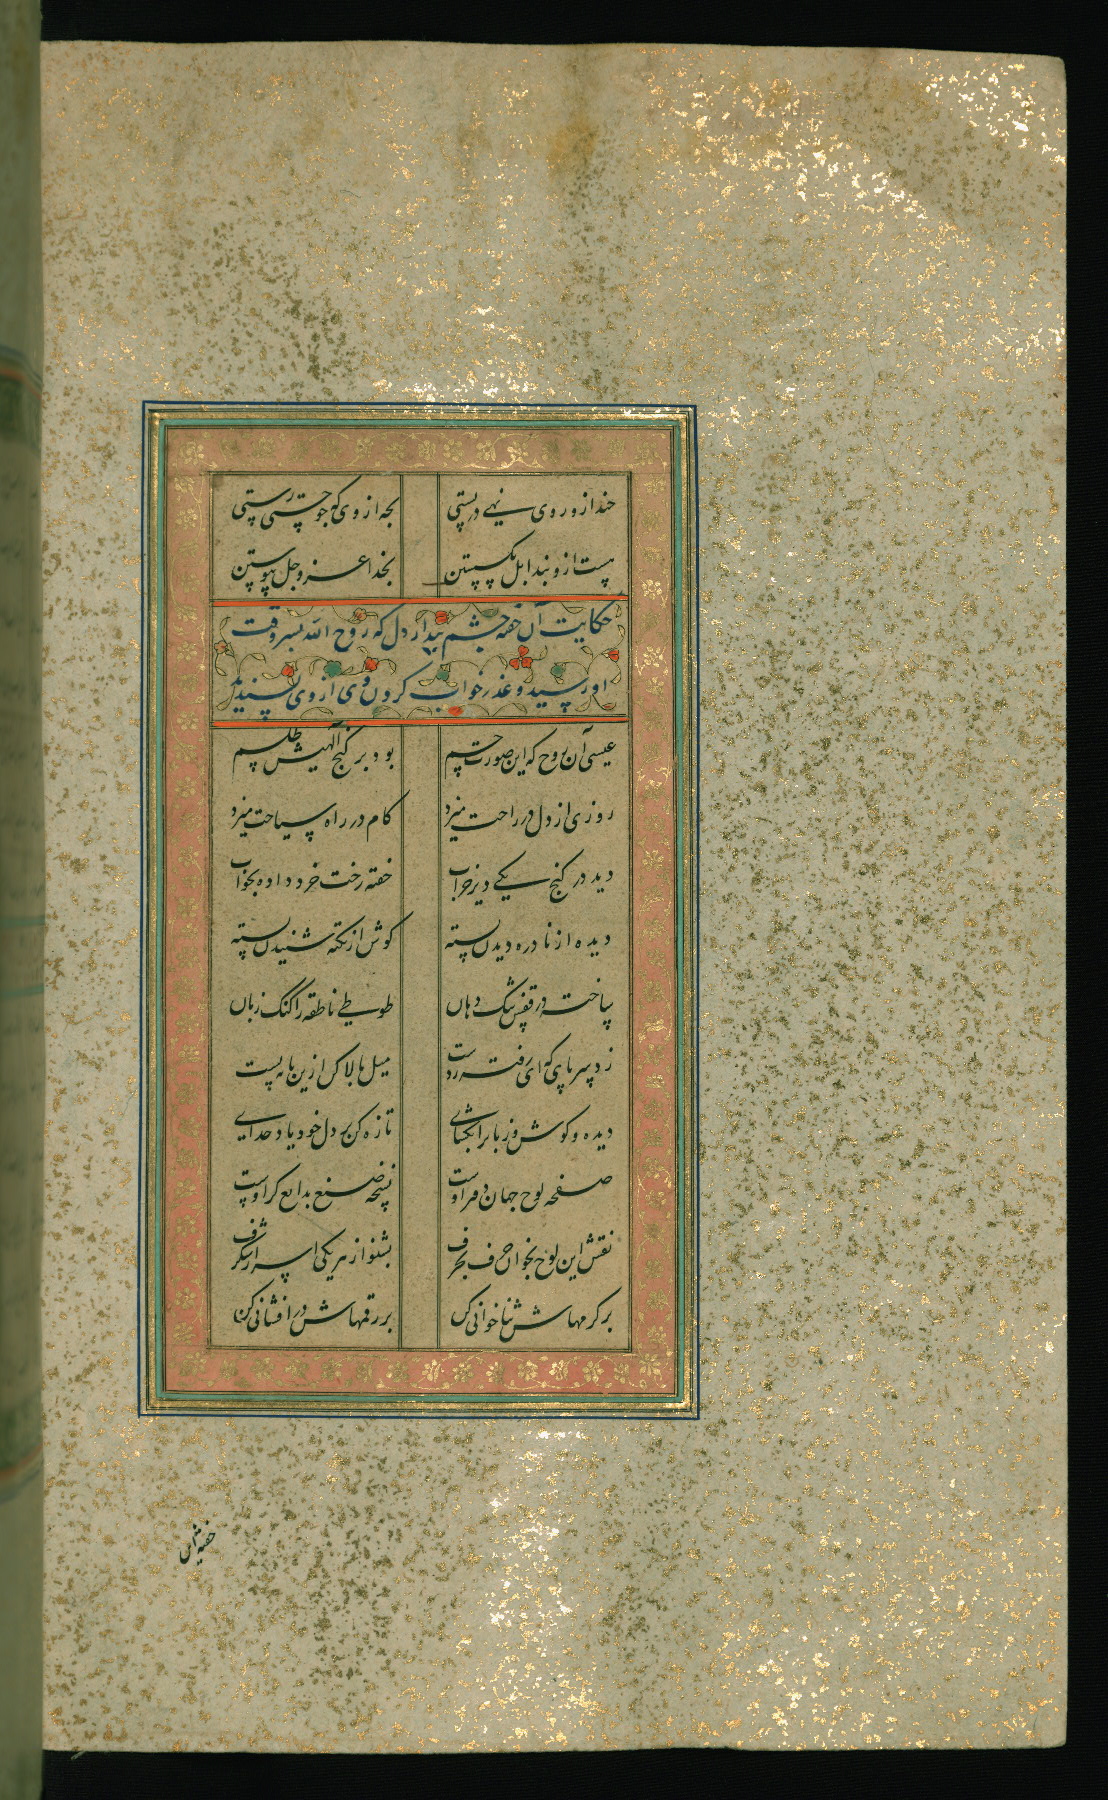 چند ازو روی نهی در پستی
بجه از وی که چو جستی رستی
چیست ازو بند امل بگسستن
بخدا عز و جل پیوستن
حکایت آن خفته چشم بیدار دل که روح الله بسر وقت
او رسید و عذر خواب کردن وی از وی پسندید
عیسی آن روح که این صورت جسم
بود بر گنج الهیش طلسم
روزی از دل در راحت میزد
کام در راه سیاحت میزد
دید در کنج یکی دیر خراب
خفته رخت خرد داده بخواب
دیده از نادره دیدن بسته
کوش از نکته شنیدن بسته
ساخت در قفس تنک دهان
طوطی ناطقه را کنک زبان
زد بسر پای که ای رفته ز دست
میل بالا کن ازین پایه پست
دیده و کوش و زبان را بکشای
تازه کن بر دل خود یاد خدای
صفحه لوح جهان دفتر اوست
نسخه صنع بدایع کر اوست
نقش این لوح بخوان حرف بحرف
بشنو از هر یکی اسرار شکرف
بر کرمهاش ثنا خوانی کن
بر رقمهاش در افشانی کن
خفته